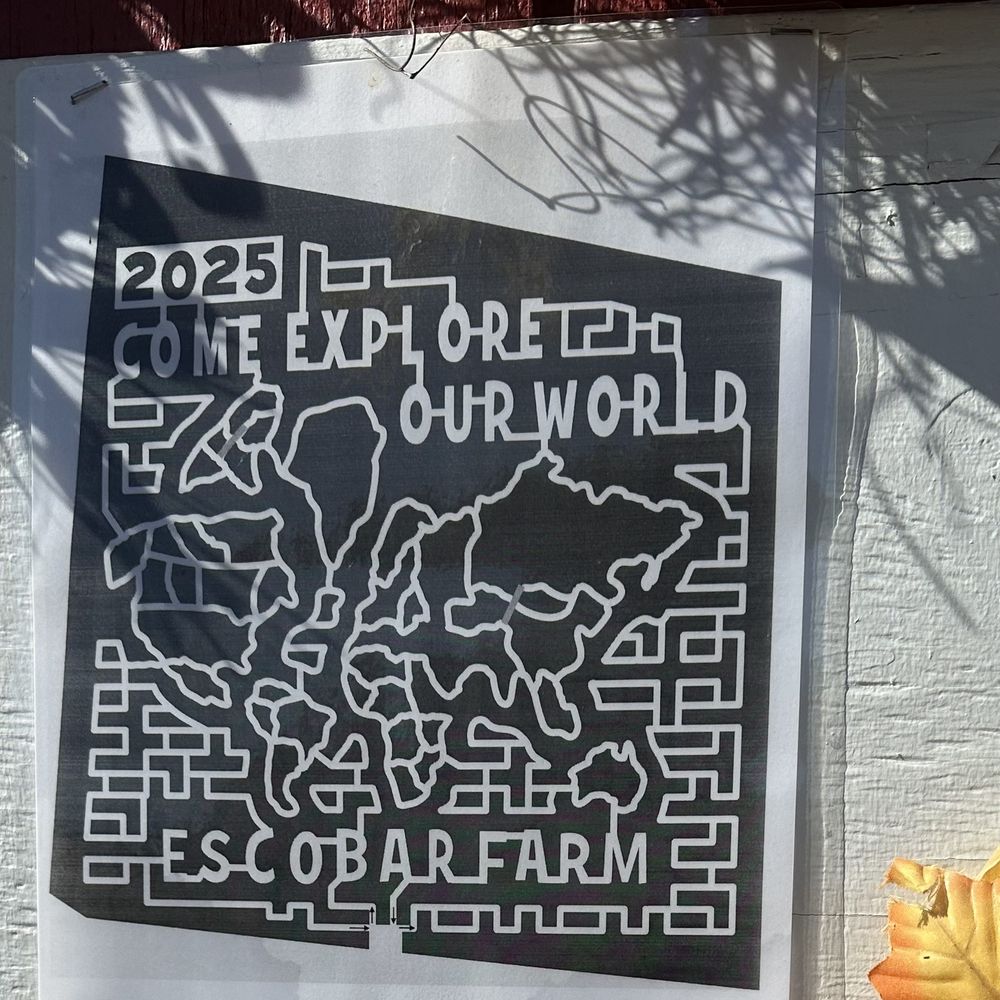 2025
COME EXPLORE
OUR WORLD
ESCOBAR FARM